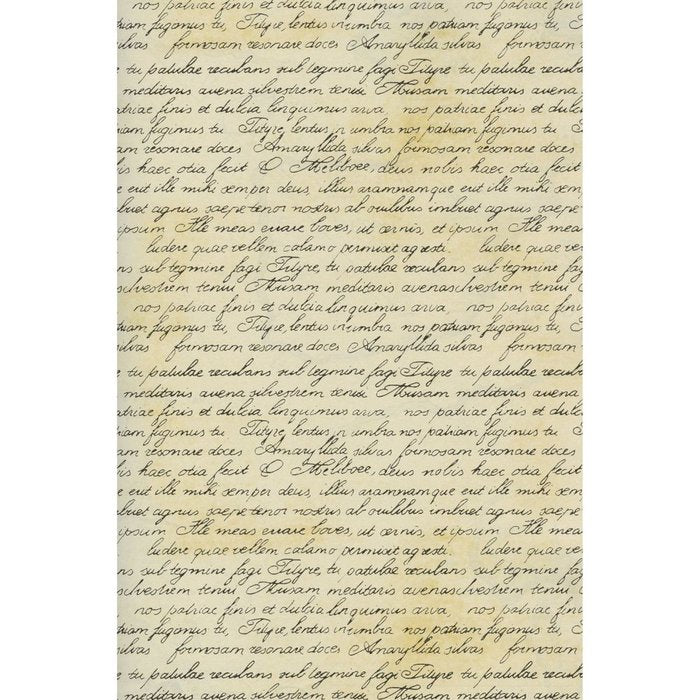 nos patriae finis et dulcia linquimus arva, nos patriae finis et dulci
riam fugamus tu, Tityre, lentus in umbra nos patriam fugimus tu
silvas formosam resonare doces Amaryllida silvas formosam re
tu patulae recubans sub tegmine fagi Tityre, tu patulae recuba
meditaris avena silvestrem tenui Musam meditaris avena
atriae finis et dulcia linquimus arva, nos patriae finis et dulci
riam fugimus tu Tityre, lentus in umbra nos patriam fugimus tu
am resonare doces Amaryllida silvas formosam resonare doces
bis haec otia fecit O Meliboee, deus nobis haec otia fecit
e erit ille mihi semper deus, illius aramnamque erit ille mihi
buet agnus saepe tenor nostris ab ovilibus imbuet agnus saepe
ipsum Ille meas errare boves, ut cernis, et ipsum Ille mea
ludere quae vellem calamo permisit agresti. ludere quae vellem
ns sub tegmine fagi Tityre, tu patulae recubans sub tegmine fag
silvestrem tenui Musam meditaris avenasilvestrem tenui
nos patriae finis et dulcia linquimus arva, nos patriae finis et dulci
riam fugamus tu, Tityre, lentus in umbra nos patriam fugimus tu
silvas formosam resonare doces Amaryllida silvas formosam re
tu patulae recubans sub tegmine fagi Tityre, tu patulae recuba
meditaris avena silvestrem tenui Musam meditaris avena
atriae finis et dulcia linquimus arva, nos patriae finis et dulci
riam fugimus tu Tityre, lentus in umbra nos patriam fugimus tu
am resonare doces Amaryllida silvas formosam resonare doces
bis haec otia fecit O Meliboee, deus nobis haec otia fecit
e erit ille mihi semper deus, illius aramnamque erit ille mihi
buet agnus saepe tenor nostris ab ovilibus imbuet agnus saepe
ipsum Ille meas errare boves, ut cernis, et ipsum Ille mea
ludere quae vellem calamo permisit agresti. ludere quae vellem
ns sub tegmine fagi Tityre, tu patulae recubans sub tegmine fag
silvestrem tenui Musam meditaris avenasilvestrem tenui
nos patriae finis et dulcia linquimus arva, nos patriae finis et dulci
riam fugamus tu, Tityre, lentus in umbra nos patriam fugimus tu
silvas formosam resonare doces Amaryllida silvas formosam re
tu patulae recubans sub tegmine fagi Tityre, tu patulae recuba
meditaris avena silvestrem tenui Musam meditaris avena